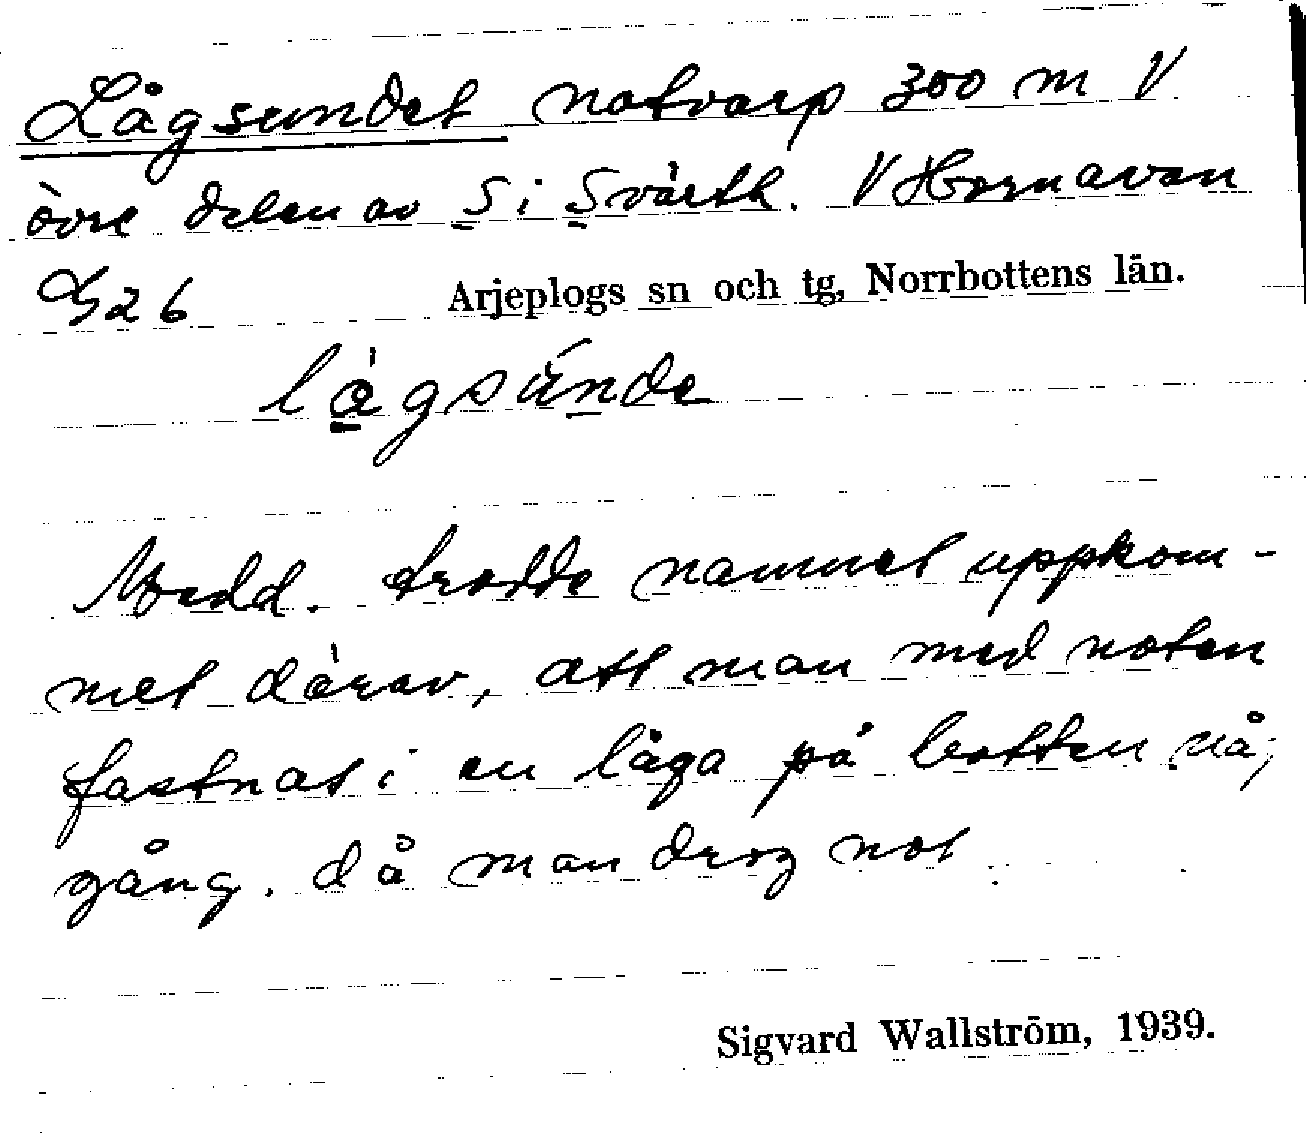 Lågsundet notvarp 300 m V
övre delen av S i Svartk. V Hornavan
G26 Arjeplogs sn och tg, Norrbottens län.
lågsúnde
Medd. trodde namnet uppkom-
met därav, att man med noten
fastnat i en låga på botten nå,
gång. då man drog not
Sigvard Wallström, 1939.